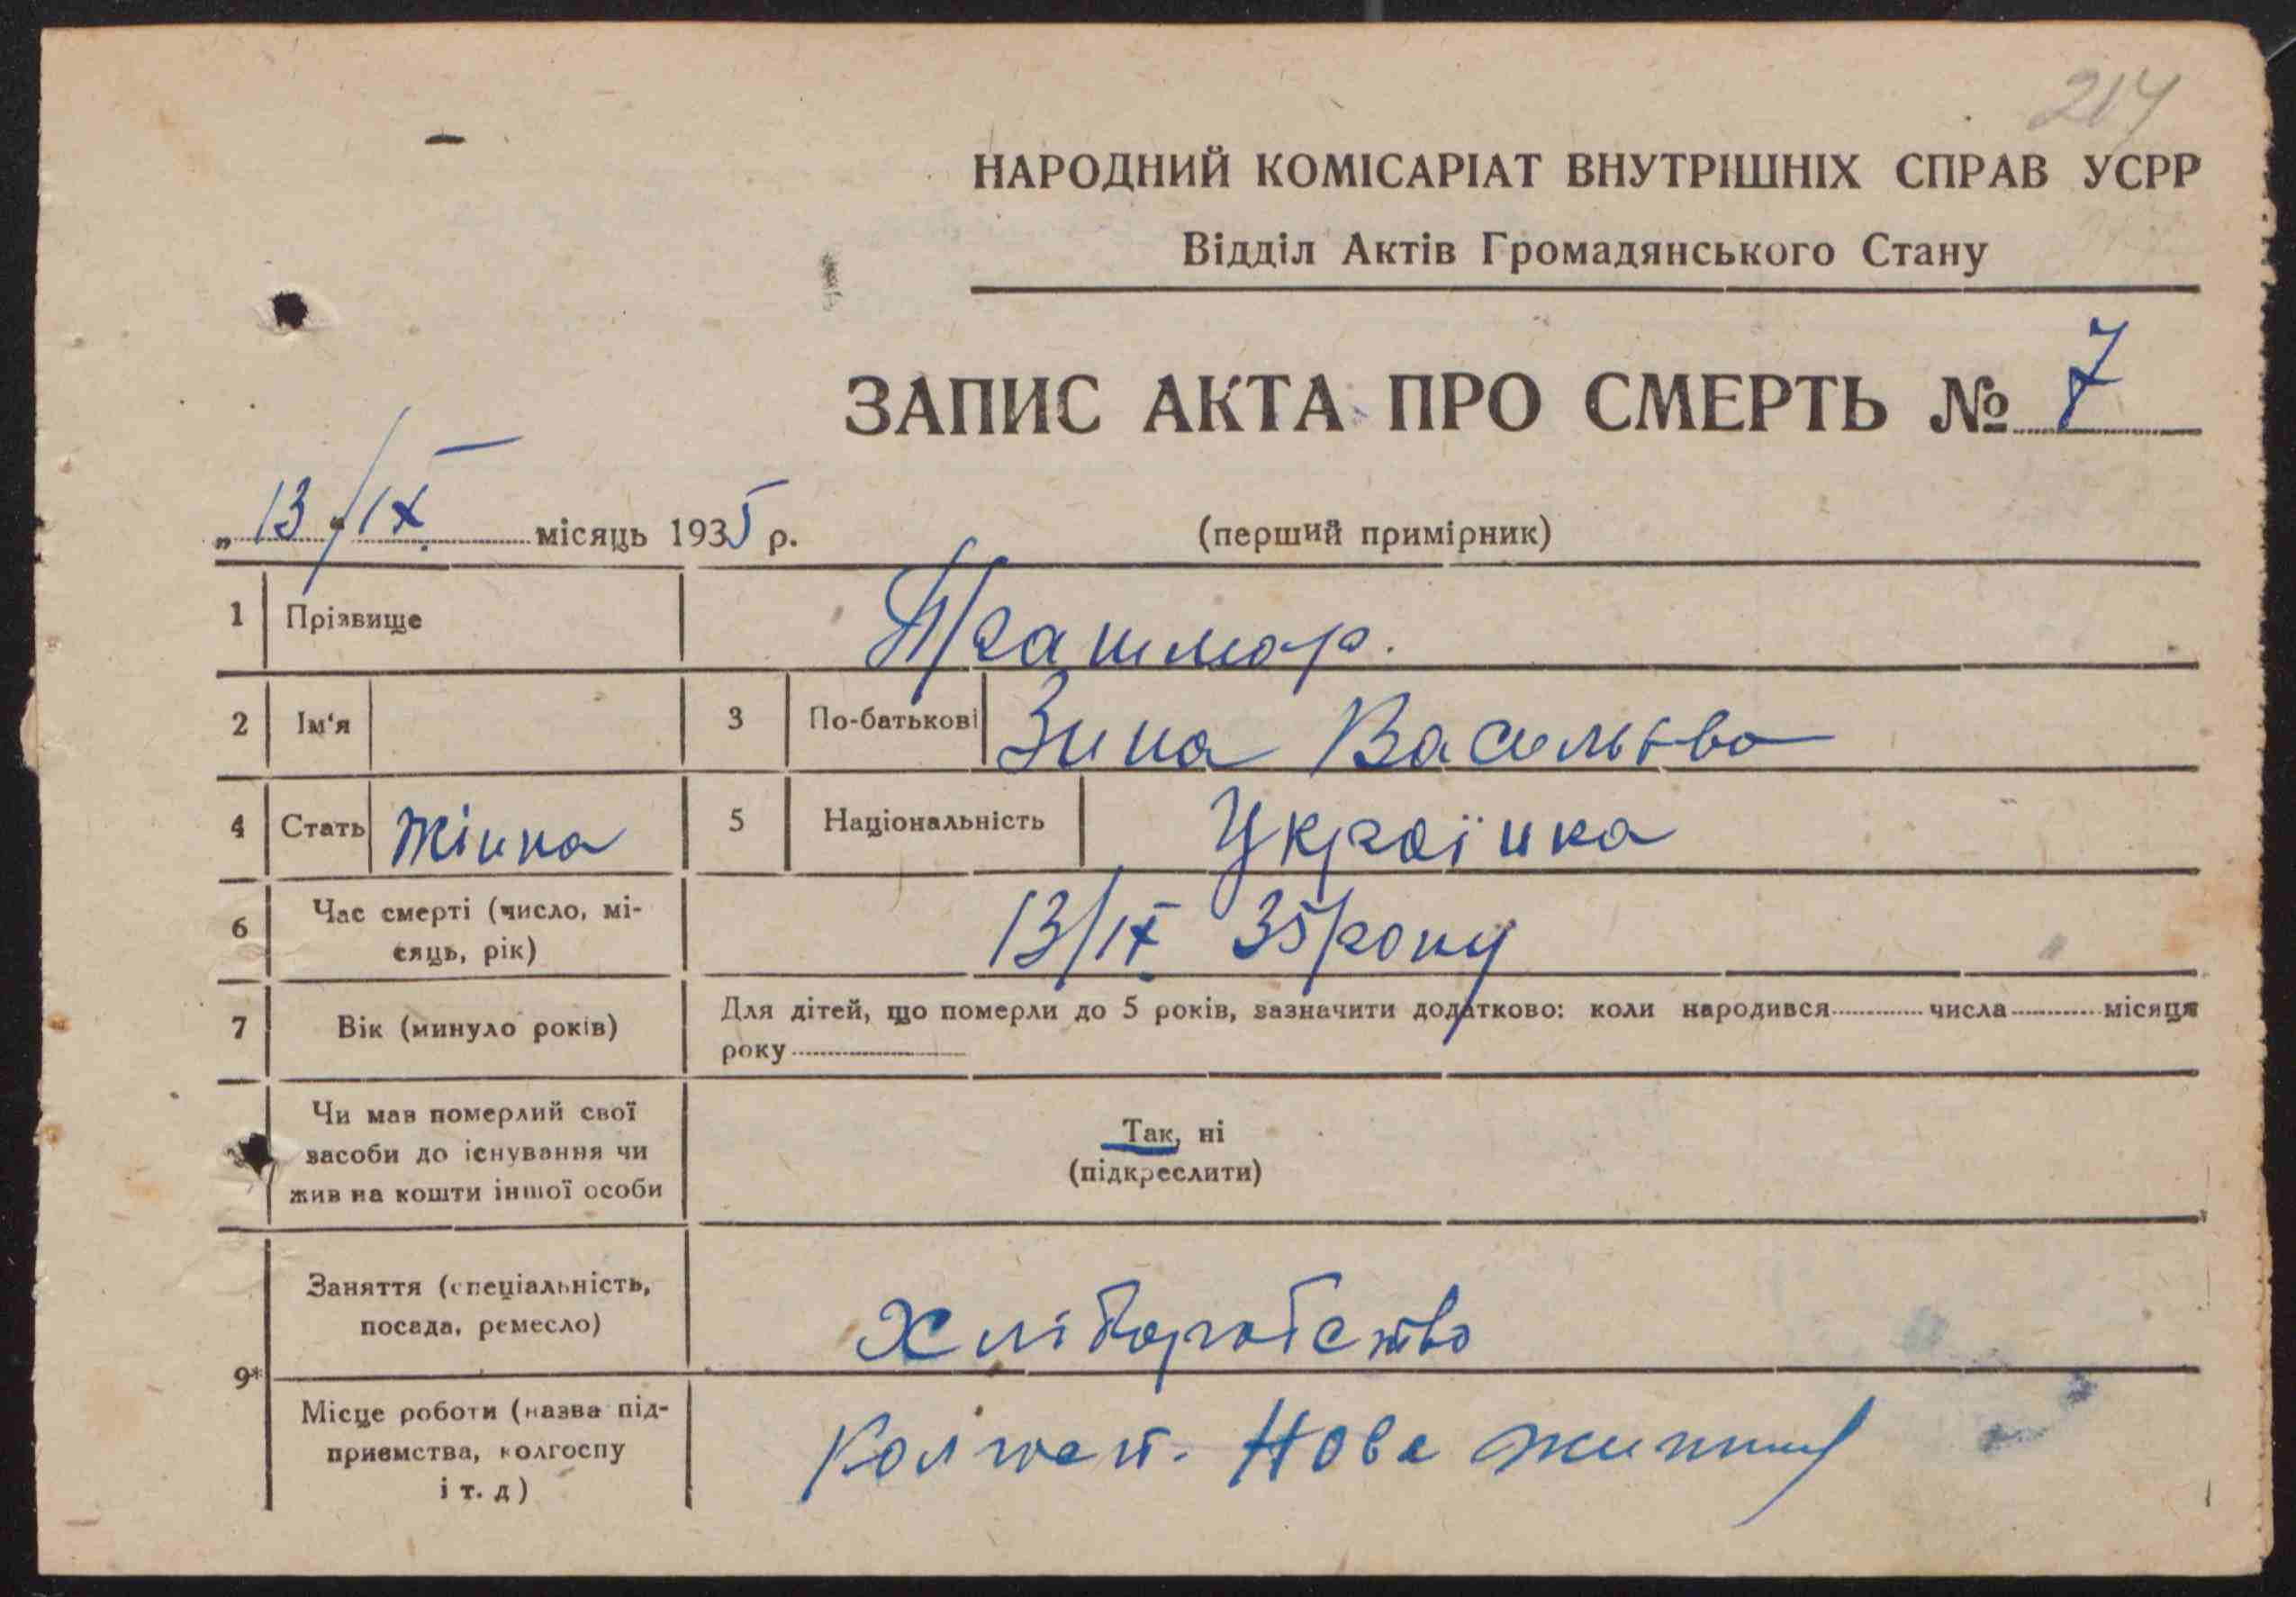 214
НАРОДНИЙ КОМІСАРІАТ ВНУТРІШНІХ СПРАВ УСРР
Відділ Актів Громадянського Стану
ЗАПИС АКТА ПРО СМЕРТЬ № 7
„13“/IX місяць 1935 р. (перший примірник)
1 Прізвище
2 Ім'я 3 По-батькові Зина Васильєва
4 Стать Жінка 5 Національність Українка
6 Час смерті (число, мі-
сяць, рік) 13/IX 35 року
7 Вік (минуло років) Для дітей, що померли до 5 років, зазначити додатково: коли народився числа місяця
року
Чи мав померлий свої
засоби до існування чи
жив на кошти іншої особи
Так, ні
(підкреслити)
9* Заняття (спеціальність,
посада, ремесло) Хліборобство
Місце роботи (назва під-
приємства, колгоспу
і т. д) Колгосп. Нове життя